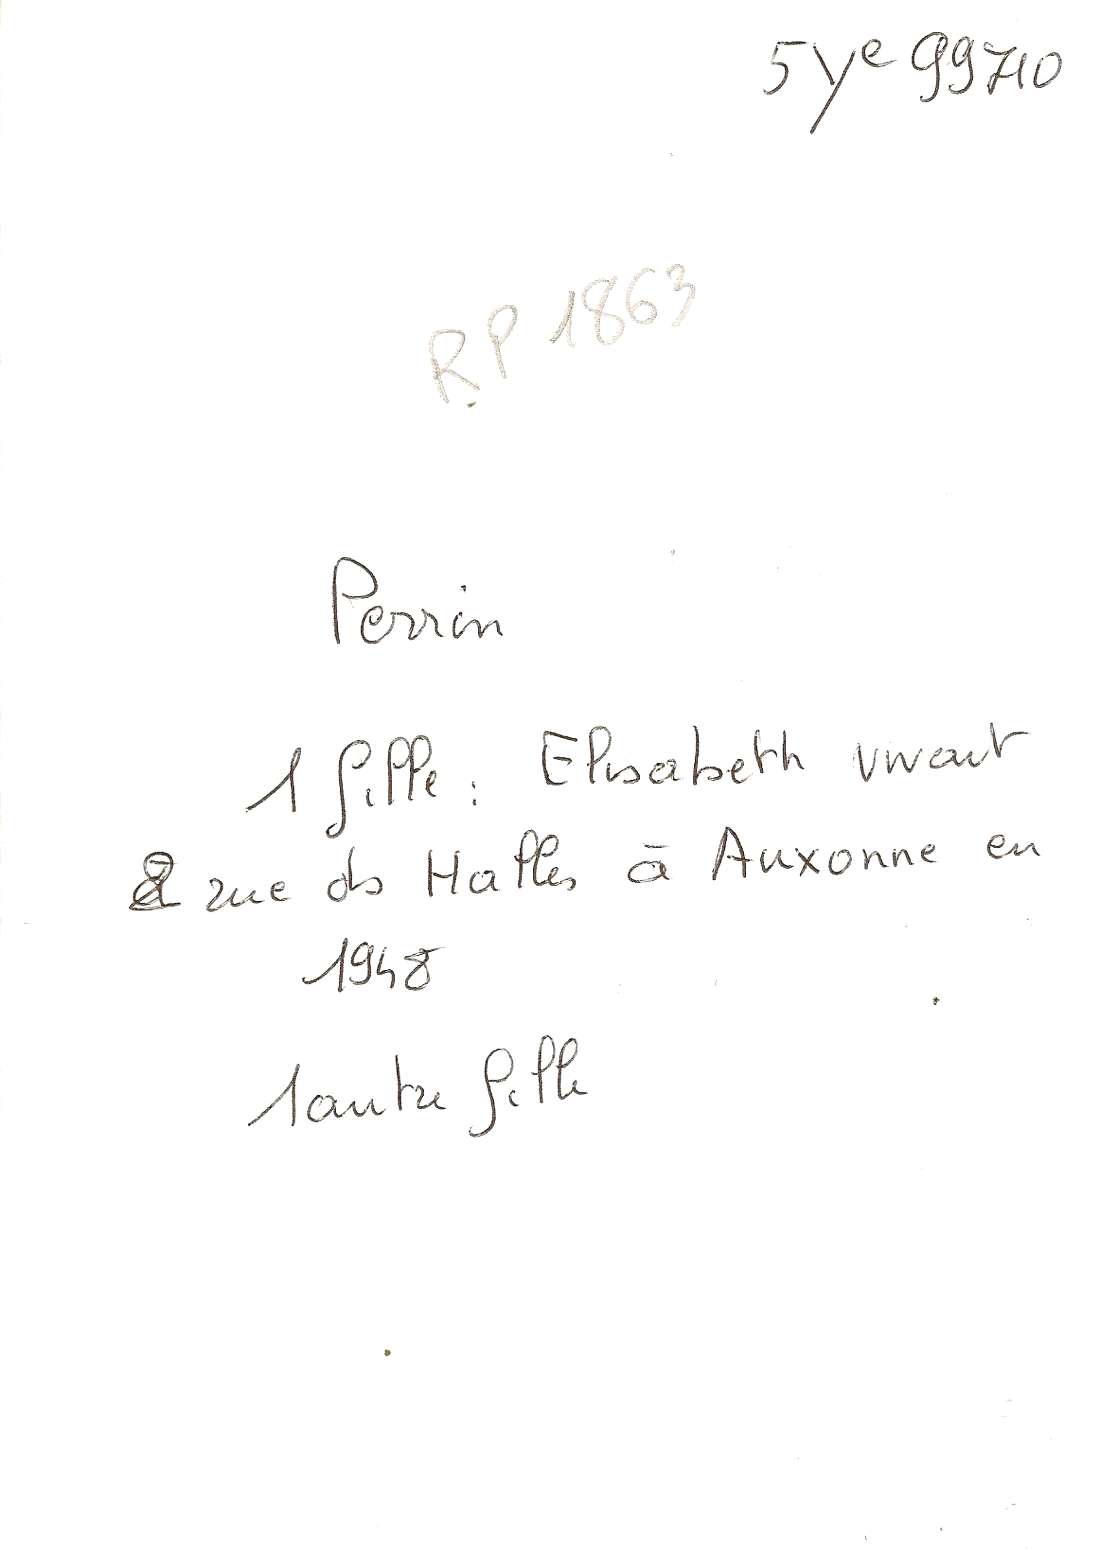 5Ye 99710
RP 1863
Perrin
1 fille : Elisabeth vivant
2 rue des Halles à Auxonne en
1948
1 autre fille